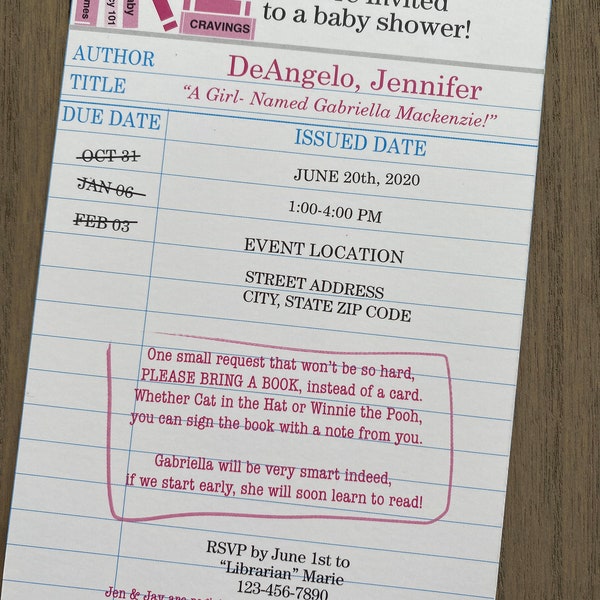 invited
to a baby shower!
CRAVINGS
AUTHOR
DeAngelo, Jennifer
TITLE
“A Girl- Named Gabriella Mackenzie!”
DUE DATE
ISSUED DATE
OCT 31
JAN 06
FEB 03
JUNE 20th, 2020
1:00-4:00 PM
EVENT LOCATION
STREET ADDRESS
CITY, STATE ZIP CODE
One small request that won’t be so hard,
PLEASE BRING A BOOK, instead of a card.
Whether Cat in the Hat or Winnie the Pooh,
you can sign the book with a note from you.
Gabriella will be very smart indeed,
if we start early, she will soon learn to read!
RSVP by June 1st to
“Librarian” Marie
123-456-7890
Jen & Jay are